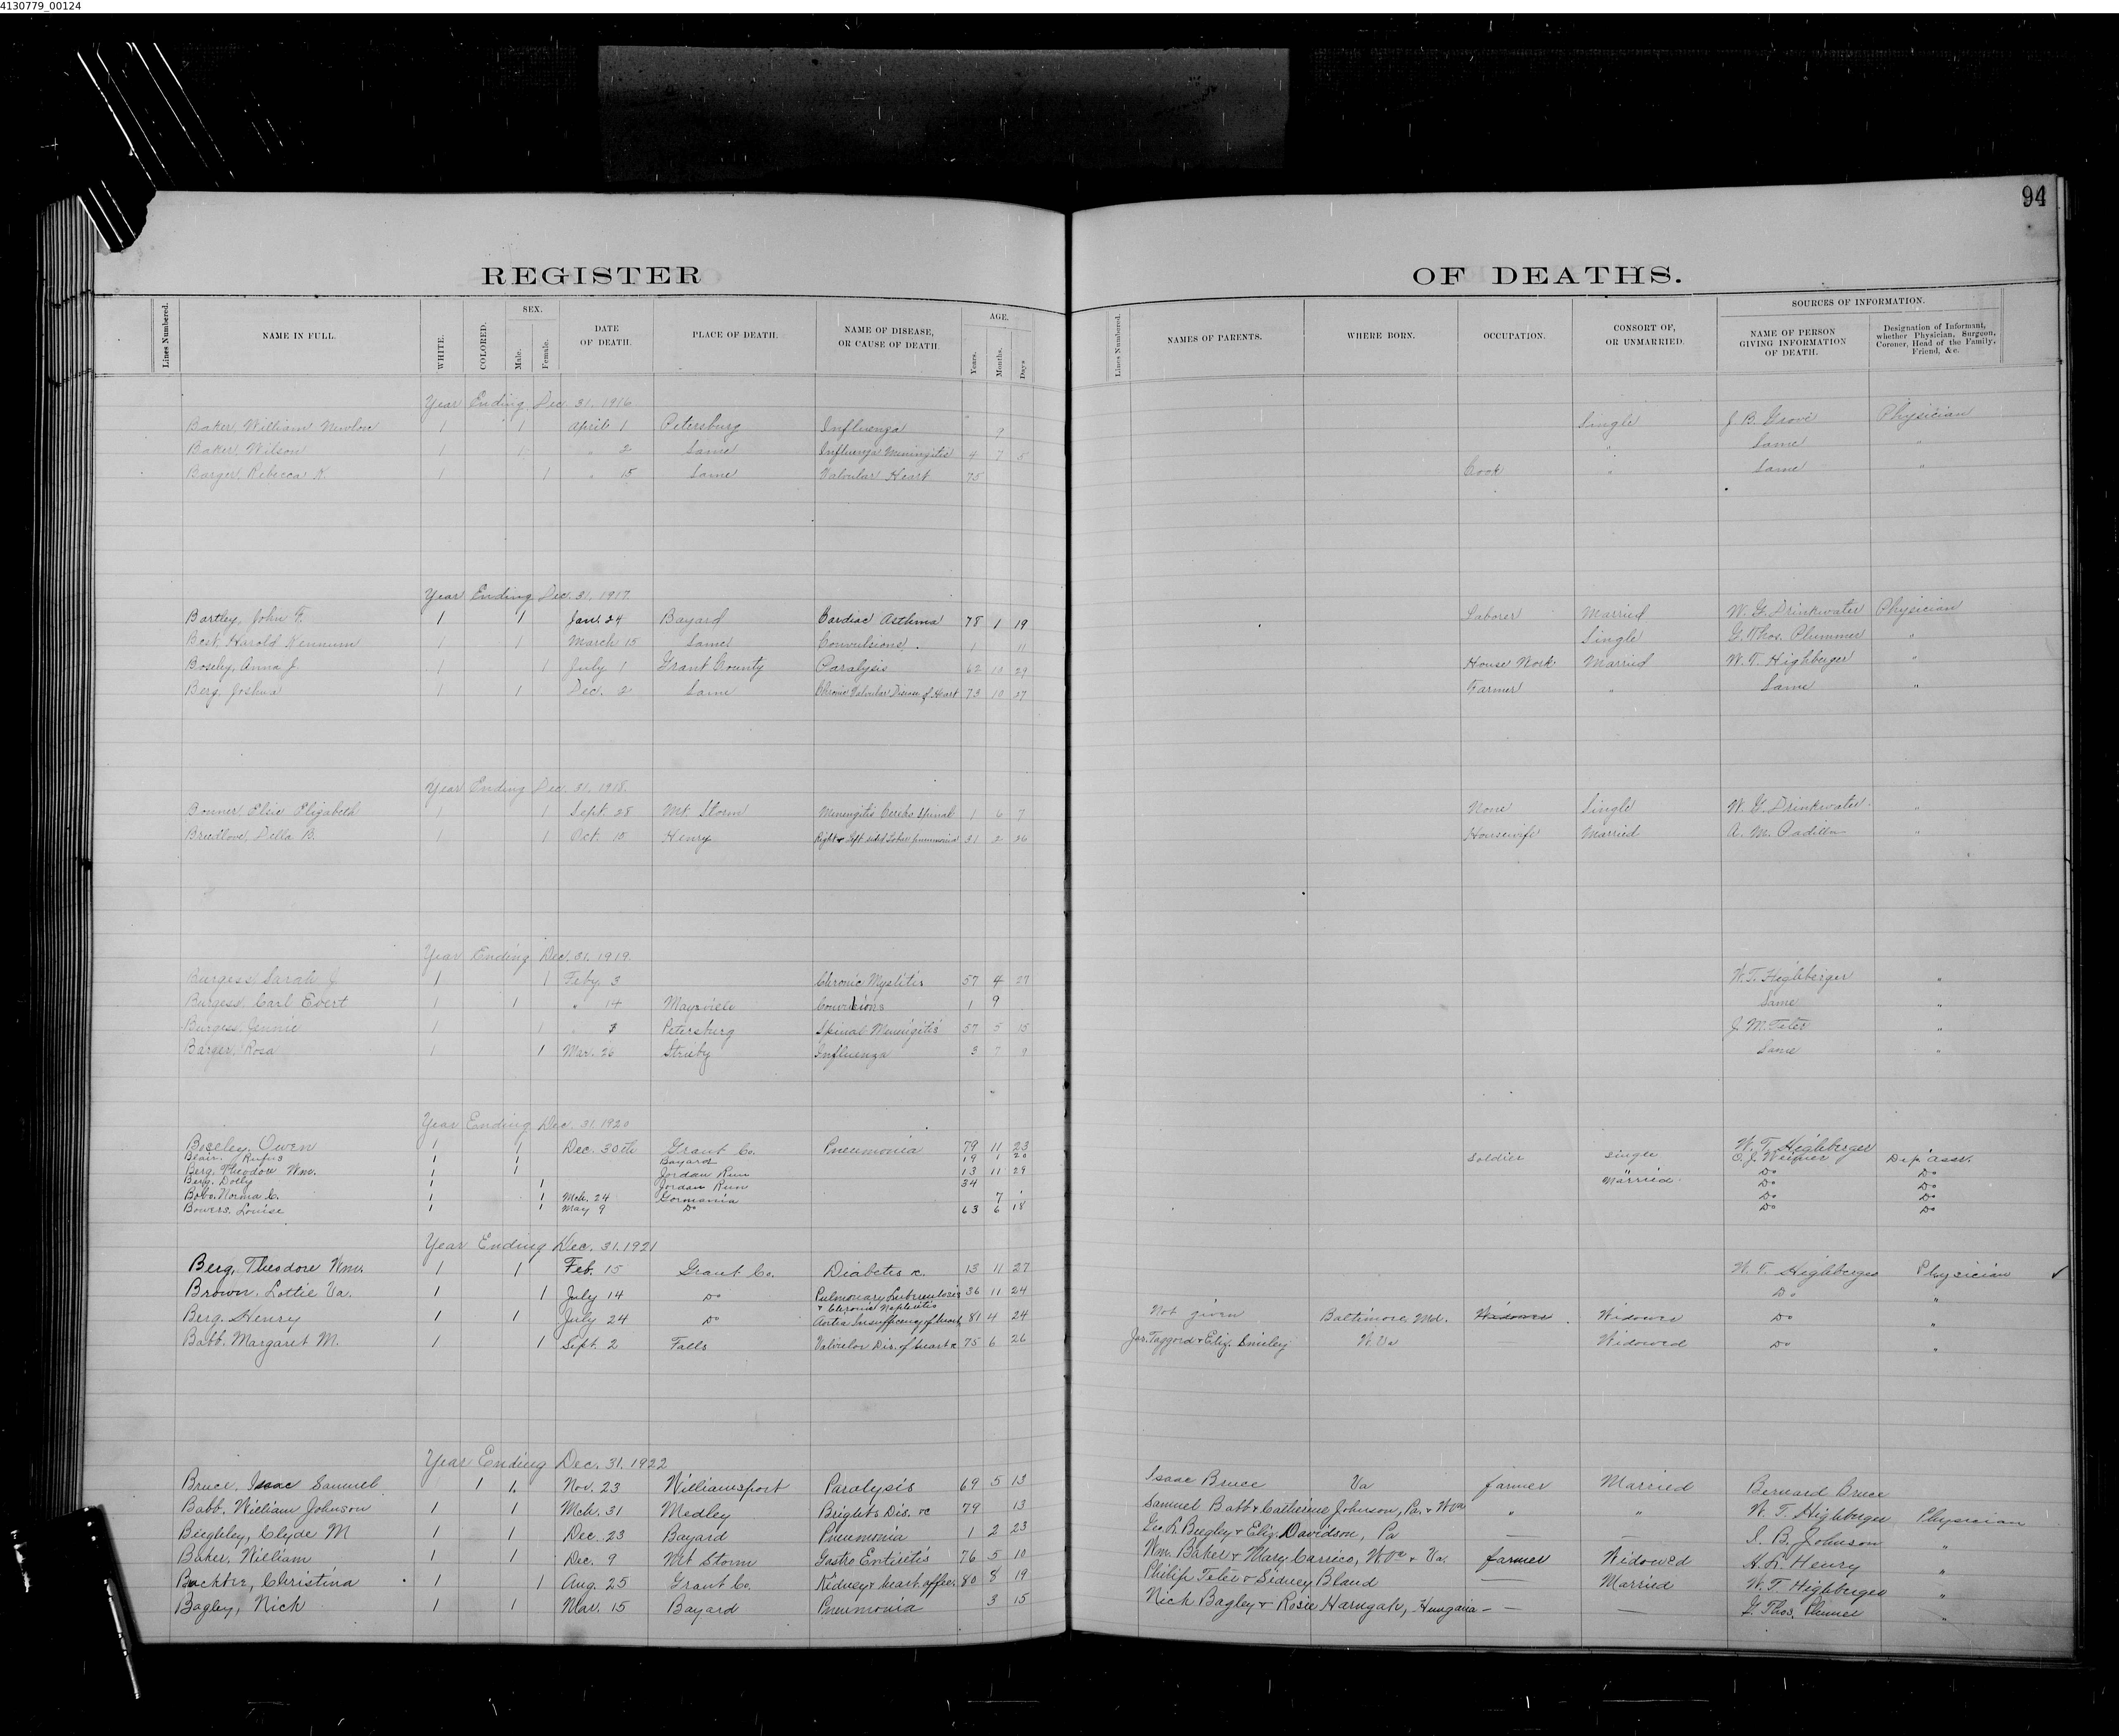 4130779_00124
94
REGISTER OF DEATHS.
Lines Numbered. NAME IN FULL. WHITE. COLORED. SEX. Male. Female. DATE OF DEATH. PLACE OF DEATH. NAME OF DISEASE, OR CAUSE OF DEATH. AGE. Years. Months. Days Lines Numbered. NAMES OF PARENTS. WHERE BORN. OCCUPATION. CONSORT OF, OR UNMARRIED. SOURCES OF INFORMATION. NAME OF PERSON GIVING INFORMATION OF DEATH. Designation of Informant, whether Physician, Surgeon, Coroner, Head of the Family, Friend, &c.
Year Ending Dec. 31. 1916
Baker, William 1 1 April 1 Petersburg Influenza 9 Single J. B. Grove Physician
Baker, Wilson 1 1 " 2 Same Influenza Miningitis 4 7 5 " Same "
Barger, Rebecca K. 1 1 " 15 Same Valvular Heart 75 Cook " Same "
Year Ending Dec. 31. 1917.
Bartley, John F. 1 1 Jan. 24 Bayard Cardiac Asthma 78 1 19 Laborer Married W. G. Drinkwater Physician
Best, Harold Kennum 1 1 March 15 Same Convulsions. 1 11 Single G. Thos. Plummer "
Bosely, Anna J. 1 1 July 1 Grant County Paralysis 62 10 29 House Work Married W. T. Highberger "
Berg, Joshua 1 1 Dec. 2 Same Chronic Valvular Disease of Heart 73 10 27 Farmer " Same "
Year Ending Dec. 31. 1918.
Bonner, Elsie Elizabeth 1 1 Sept. 28 Mt. Storm Miningitis Cerebo Spinal 1 6 7 None Single W. G. Drinkwater "
Breedlove, Della B. 1 1 Oct. 15 Henry Right & Left sided Lobar pneumonia 31 2 26 Housewife Married A. M. Padilla "
Year Ending Dec. 31. 1919.
Burgess Sarah J 1 1 Feby. 3 Chronic Myelitis 57 4 27 W. T. Highberger "
Burgess, Carl Ebert 1 1 " 14 Maysville Convulsions 1 9 Same "
Burgess, Jennie 1 1 " 3 Petersburg Spinal Meningitis 57 5 15 J. M. Teter "
Barger, Rosa 1 1 Mar. 26 Streby Influenza 3 7 9 Same "
Year Ending Dec. 31. 1920
Boseley, Owen 1 1 Dec. 30th Grant Co. Pneumonia 79 11 23 W. T. Highberger
Blair, Rufus 1 1 Bayard 19 1 20 Soldier Single O. J. Weimer Dep. Assr.
Berg, Theodore Wm. 1 1 Jordan Run 13 11 29 Do Do
Berg, Dolly 1 1 Jordan Run 34 Married Do Do
Bobo, Norma C. 1 1 Mch. 24 Gormania 7 1 Do Do
Bowers, Louise 1 1 May 9 Do 63 6 18 Do Do
Year Ending Dec. 31. 1921
Berg, Theodore Wm. 1 1 Feb. 15 Grant Co. Diabetis &c. 13 11 27 W. T. Highberger Physician
Brown, Lottie Va. 1 1 July 14 Do Pulmonary Tuberculosis & Chronic Nephritis 36 11 24 Do "
Berg, Henry 1 1 July 24 Do Aortic Insufficiency of Heart 81 4 24 Not given Baltimore, Md. Widower Widower Do "
Babb, Margaret M. 1 1 Sept. 2 Falls Valvular Dis. of Heart &c 75 6 26 Jas. Taggord & Eliz. Smiley W. Va Widowed Do "
Year Ending Dec. 31. 1922
Bruce, Isaac Samuel 1 1 Nov. 23 Williamsport Paralysis 69 5 13 Isaac Bruce Va farmer Married Bernard Bruce
Babb, William Johnson 1 1 Mch. 31 Medley Brights Dis. &c 79 13 Samuel Babb & Catherine Johnson, Pa. & W Va " " W. T. Highberger Physician
Bieghley, Clyde M 1 1 Dec. 23 Bayard Pneumonia 1 2 23 Geo. L. Beegley & Eliz. Davidson, Pa — — I. B. Johnson "
Baker, William 1 1 Dec. 9 Mt Storm Gastro Entiritis 76 5 10 Wm. Baker & Mary Carrico, W Va & Va. farmer Widowed "
Christina 1 1 Aug. 25 Grant Co. Kidney & heart affec. 80 8 19 Philip Teter & Sidney Bland — Married W. T. Highberger "
Bagley, Nick 1 1 Mar. 15 Bayard Pneumonia 3 15 Nick Bagley & Rosie Harngah, Hungaria — — G. Thos. "